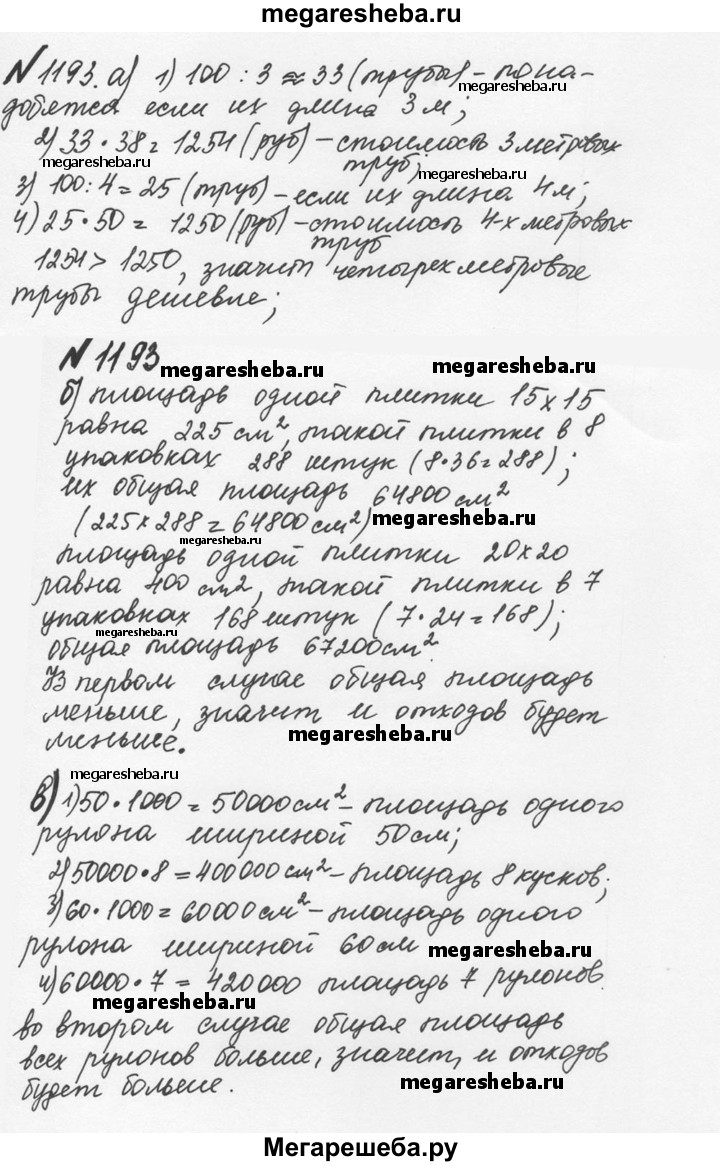 megaresheba.ru
N 1193. а) 1) 100 : 3 ≈ 33 (трубы) – пона-
megaresheba.ru
добятся если их длина 3 м;
2) 33 · 38 = 1254 (руб) – стоимость 3 метровых
megaresheba.ru
труб;
megaresheba.ru
3) 100 : 4 = 25 (труб) – если их длина 4 м;
4) 25 · 50 = 1250 (руб) – стоимость 4-х метровых
megaresheba.ru
труб
1254 > 1250, значит четырехметровые
трубы дешевле;
N 1193
megaresheba.ru
megaresheba.ru
б) площадь одной плитки 15 х 15
равна 225 см², такой плитки в 8
упаковках 288 штук (8 · 36 = 288);
их общая площадь 64800 см²
(225 х 288 = 64800 см²)
megaresheba.ru
megaresheba.ru
площадь одной плитки 20 х 20
равна 400 см², такой плитки в 7
упаковках 168 штук (7 · 24 = 168);
megaresheba.ru
общая площадь 67200 см².
В первом случае общая площадь
меньше, значит и отходов будет
меньше.
megaresheba.ru
megaresheba.ru
в) 1) 50 · 1000 = 50000 см² – площадь одного
рулона шириной 50 см;
2) 50000 · 8 = 400000 см² – площадь 8 кусков;
3) 60 · 1000 = 60000 см² – площадь одного
рулона шириной 60 см
megaresheba.ru
4) 60000 · 7 = 420000 площадь 7 рулонов.
megaresheba.ru
во втором случае общая площадь
всех рулонов больше, значит, и отходов
будет больше.
megaresheba.ru
Мегарешеба.ру